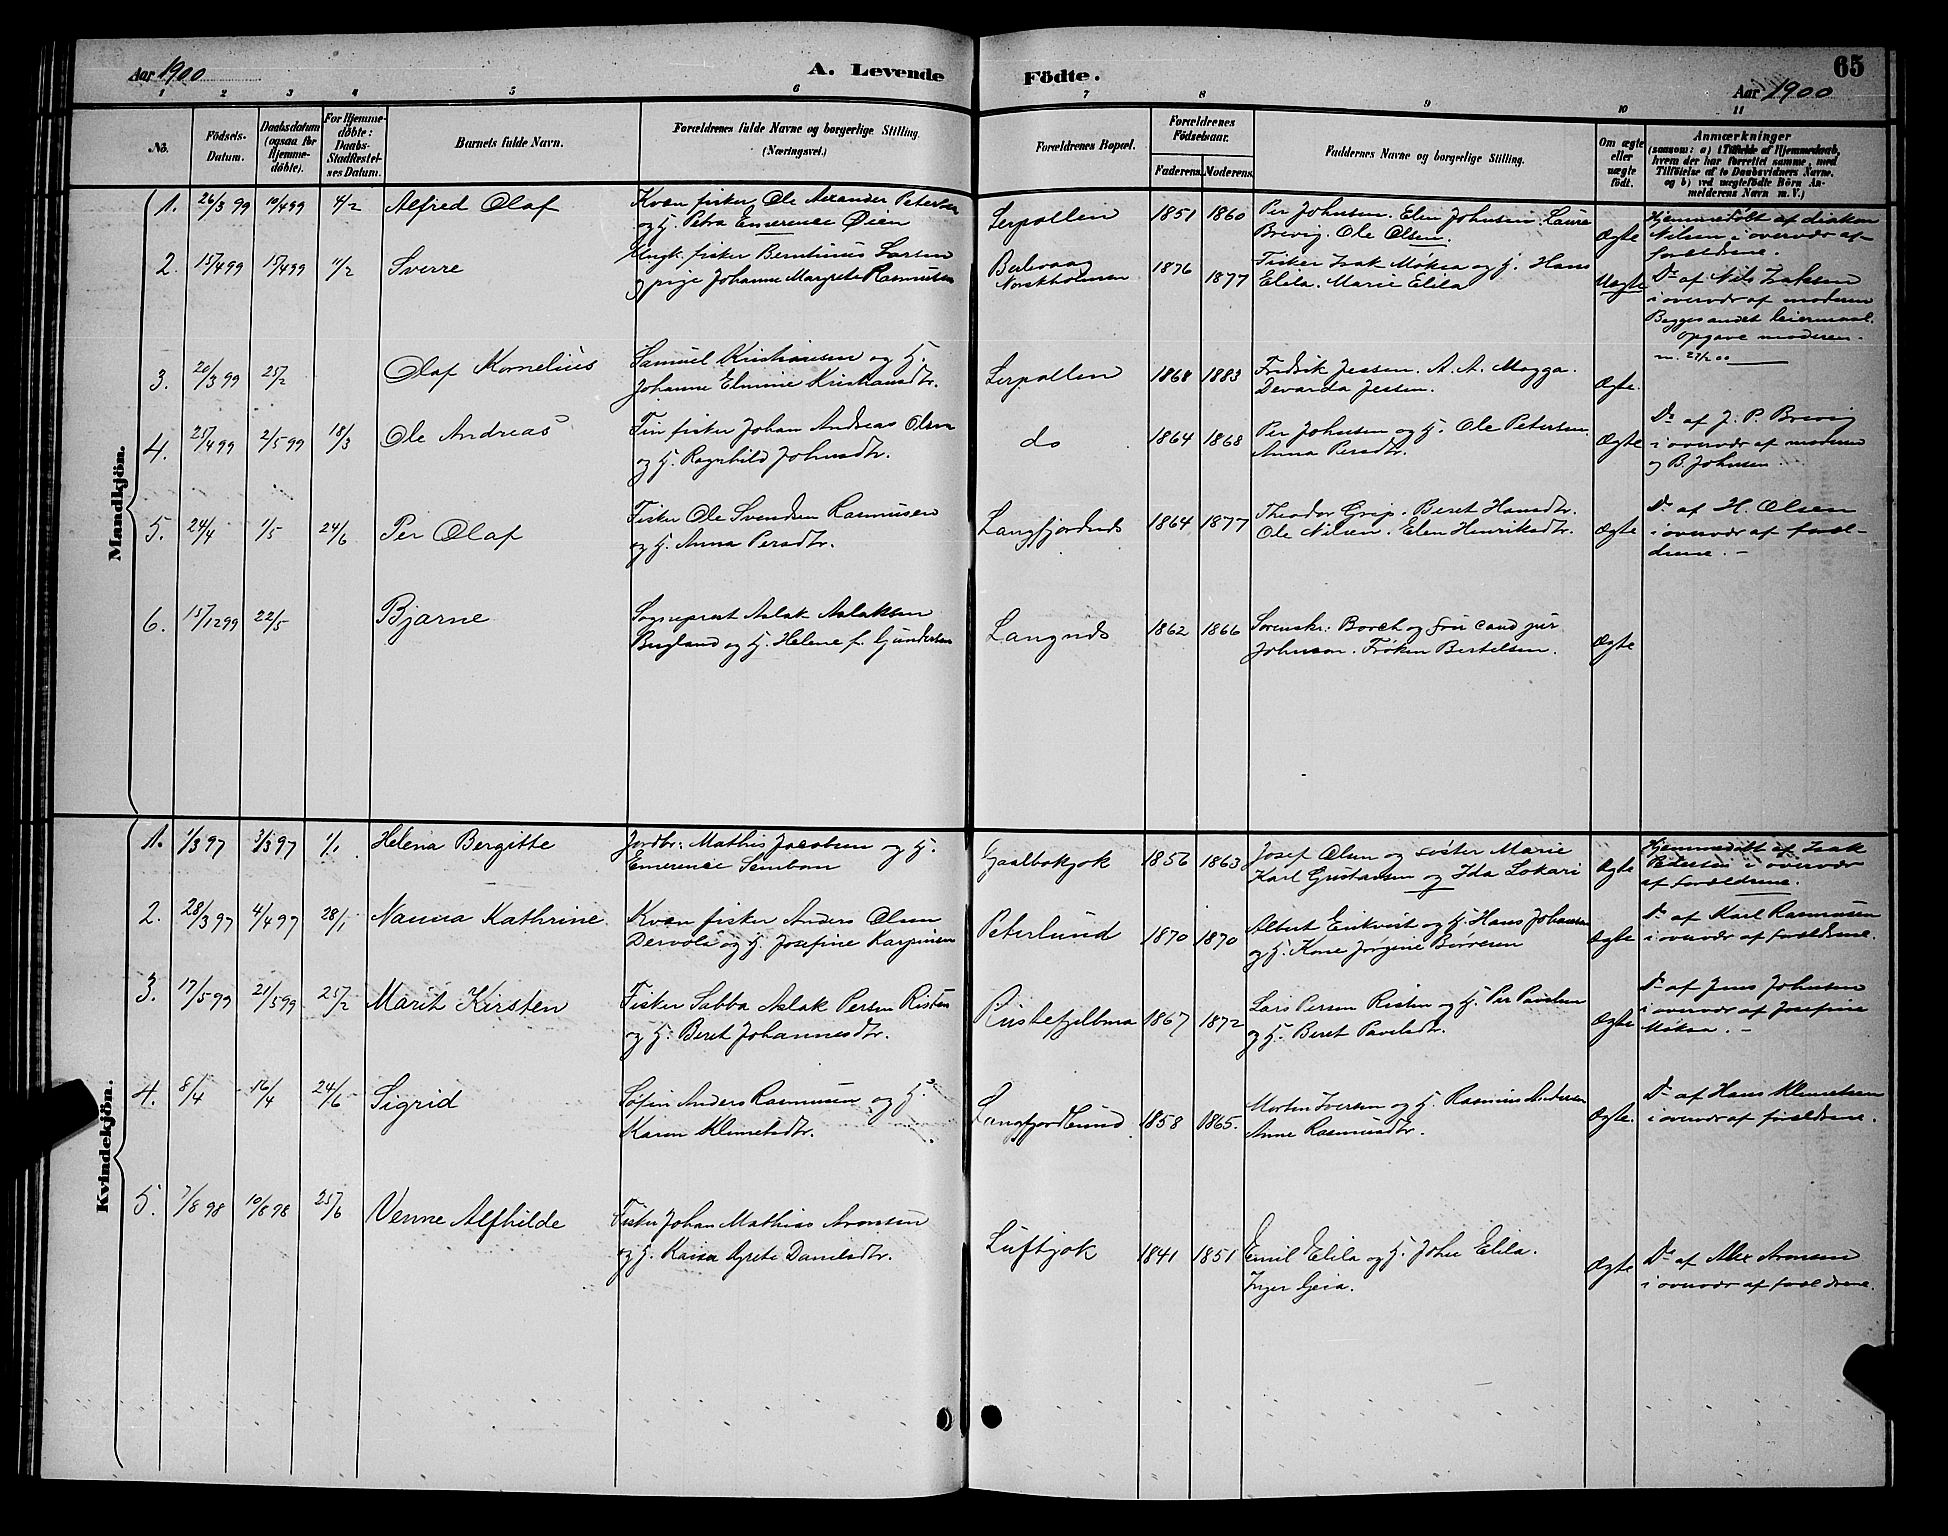 Aar 1900
A. Levende
Födte.
65
Aar 1900
1 2 3 4 5 6 7 8 9 10 11
No.
Födsels-
Datum.
Daabsdatum
(ogsaa for
Hjemme-
döbte).
For Hjemme-
döbte:
Daabs-
Stadfæstel-
ses Datum.
Barnets fulde Navn.
Forældrenes fulde Navne og borgerlige Stilling.
(Næringsvei.)
Forældrenes Bopæl.
Forældrenes
Födselsaar.
Faderens. Moderens.
Faddernes Navne og borgerlige Stilling.
Om ægte
eller
uægte
födt.
Anmærkninger
(saasom: a) i Tilfælde af Hjemmedaab,
hvem der har forrettet samme, med
Tilföielse af to Daabsvidners Navne.
og b) ved uægtefödte Börn An-
melderens Navn m. V.)
Mandkjön.
1. 26/3 99 10/4 99 4/2 Alfred Olaf
Kvæn fisker Ole Alexander Petersen
og H. Petra Emerence Øien
Lerpollen 1851 1860
Per Johnsen. Elen Johnsen. Laura
Brevig. Ole Olsen.
Ægte
Hjemmedøbt af diakon
Nilsen i overvær af
forældrene.
2. 15/4 99 15/4 99 11/2 Sverre
Ungk. fisker Bernhinus Larsen
og pige Johanne Margrete Rasmussen
Norskholmen 1876 1877
Fisker Isak Møksa og H. Hans
Elila. Marie Elila
Uægte
Do af Nils Isaksen
i overvær af moderen
Begges andet leiermaal.
Opgave moderen.
3. 20/3 99 25/2 Olaf Kornelius
Samuel Kristiansen og H.
Johanne Elmine Kristiansdtr.
Lerpollen 1868 1883
Fredrik Jessen. A. A. Magga.
Devarda Jessen.
Ægte.
4. 25/4 99 2/5 99 18/3 Ole Andreas
Fin fisker Johan Andreas Olsen
og H. Ragnhild Johnsdtr.
do 1864 1868
Per Johnsen og H. Ole Petersen.
Anna Persdtr.
Ægte
Do af J. P. Brevig
i overvær af moderen
og B. Johnsen
5. 24/4 1/5 24/6 Per Olaf
Fisker Ole Svendsen Rasmusen
og H. Anna Persdtr.
Langfjordnds 1864 1877
Theodor Grip. Beret Hansdtr.
Ole Nilsen. Elen Henriksdtr.
Ægte
Do af H. Olsen
i overvær af foræl-
drene. –
6. 15/12 99 22/5 Bjarne
Sogneprest Aslak Aslaksen
Bugland og H. Helene f. Gundersen
Langnds 1862 1866
Sorenskr: Borch og frue cand jur
Johnson. Frøken Bertelsen.
Ægte
Kvindekjön.
1. 1/3 97 3/3 97 1/1 Helena Bergitte
Jordbr: Mathis Jacobsen og H.
Emerence
Gaalbokjok 1856 1863
Josef Olsen og søster Marie
Karl Gustavsen og Ida Lokari
Ægte
Hjemmedøbt af Isak
Pedersen i overvær
af forældrene.
2. 28/3 97 4/4 97 28/1 Nanna Kathrine
Kvæn fisker Anders Olsen
Dervola og H. Josefine Karpinen
Peterlund 1870 1870
Albert Enkvist og H. Hans Johansen
og H. Kone Jørgine Børresen
Ægte
Do af Karl Rasmusen
i overvær af forældrene.
3. 17/5 99 21/5 99 25/2 Marit Kirsten
Fisker Sabba Aslak Persen Risten
og H. Beret Johannesdtr.
Rustefjelbma 1867 1872
Lars Persen Risten og H. Per Pavelsen
og H. Beret Pavelsdtr.
Ægte
Do af Jens Johnsen
i overvær af Josefine
Møksa. –
4. 8/4 16/4 24/6 Sigrid
Søfin Anders Rasmusen og H.
Karen Klemetsdtr.
Langfjordbund 1858 1865.
Morten Iversen og H. Rasmus Andersen
Anne Rasmusdtr.
Ægte.
Do af Hans Klemetsen
i overvær af forældrene.
5. 7/8 98 10/8 98 25/6 Venne Alfhilde
Fisker Johan Mathias Aronsen
og H. Kaisa Grete Danielsdtr.
Luftjok 1841 1851
Emil Elila og H. John Elila.
Inger Geia.
Ægte
Do af Alex Aronsen
i overvær af forældrene.